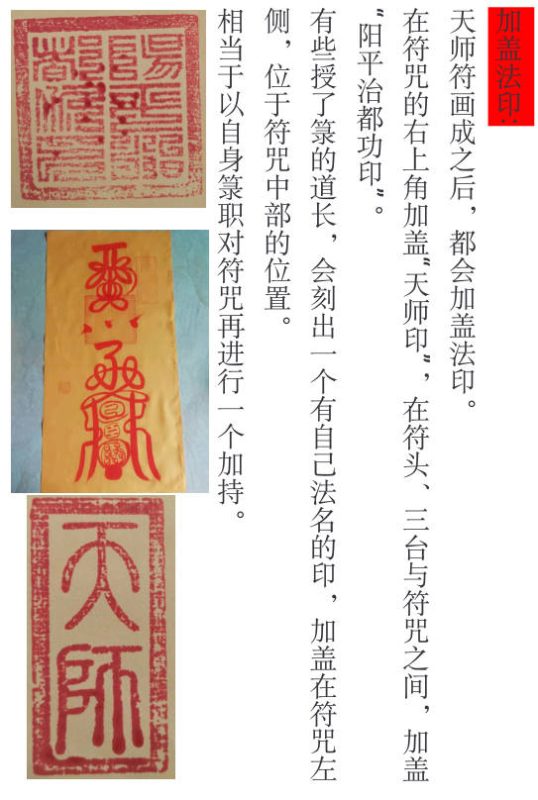 加盖法印：
天师符画成之后，都会加盖法印。
在符咒的右上角加盖“天师印”，在符头、三台与符咒之间，加盖
“阳平治都功印”。
有些授了箓的道长，会刻出一个有自己法名的印，加盖在符咒左
侧，位于符咒中部的位置。
相当于以自身箓职对符咒再进行一个加持。
天師